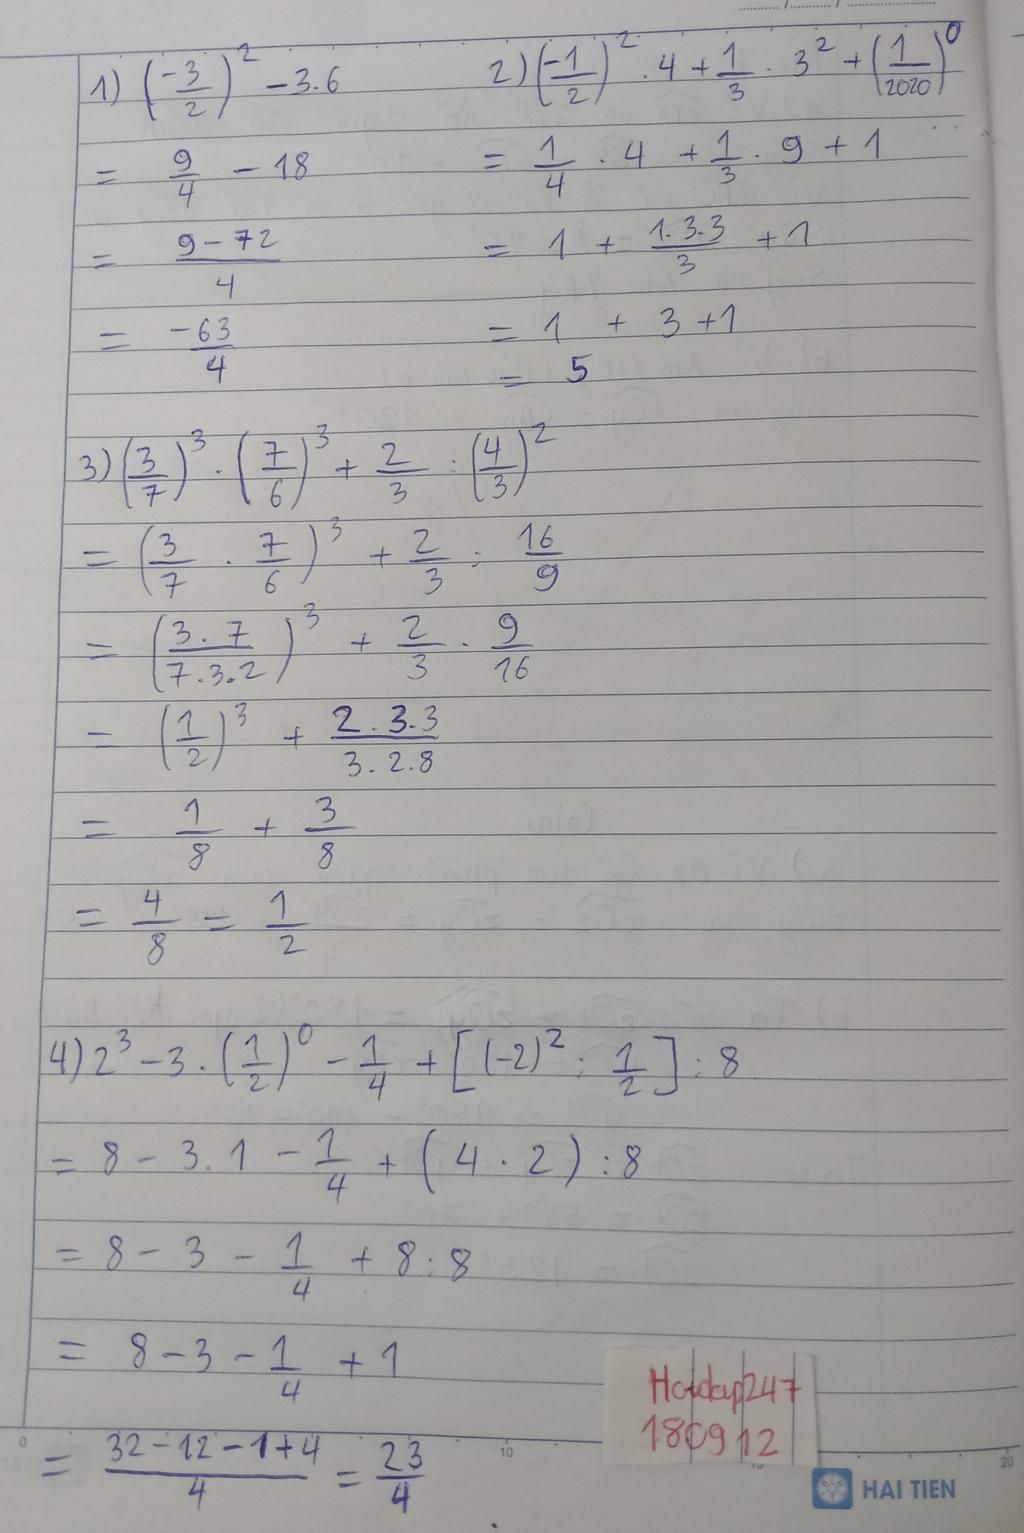 1) (-3/2)² - 3.6
= 9/4 - 18
= (9 - 72)/4
= -63/4
2) (-1/2)² . 4 + 1/3 . 3² + (1/2020)⁰
= 1/4 . 4 + 1/3 . 9 + 1
= 1 + (1.3.3)/3 + 1
= 1 + 3 + 1
= 5
3) (3/7)³ . (7/6)³ + 2/3 : (4/3)²
= (3/7 . 7/6)³ + 2/3 : 16/9
= ((3.7)/(7.3.2))³ + 2/3 . 9/16
= (1/2)³ + (2.3.3)/(3.2.8)
= 1/8 + 3/8
= 4/8 = 1/2
4) 2³ - 3 . (1/2)⁰ - 1/4 + [(-2)² : 1/2] : 8
= 8 - 3.1 - 1/4 + (4 . 2) : 8
= 8 - 3 - 1/4 + 8 : 8
= 8 - 3 - 1/4 + 1
= (32 - 12 - 1 + 4)/4 = 23/4
Hoidap247
180912
0 10 20
HAI TIEN